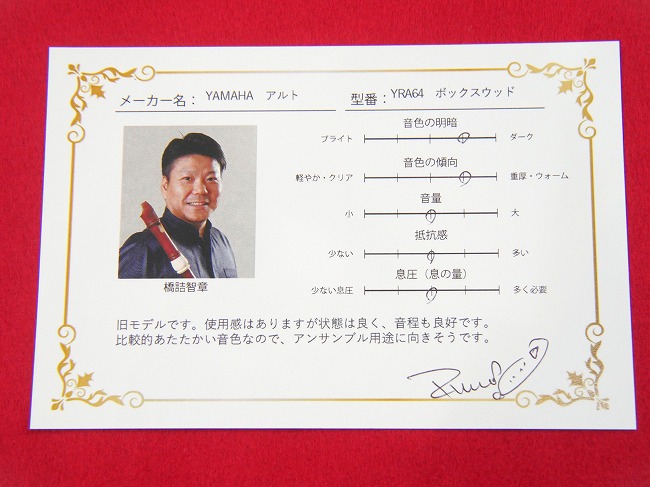 メーカー名： YAMAHA アルト 型番： YRA64 ボックスウッド
音色の明暗
ブライト ダーク
音色の傾向
軽やか・クリア 重厚・ウォーム
音量
小 大
抵抗感
少ない 多い
息圧（息の量）
少ない息圧 多く必要
橋詰智章
旧モデルです。使用感はありますが状態は良く、音程も良好です。
比較的あたたかい音色なので、アンサンブル用途に向きそうです。